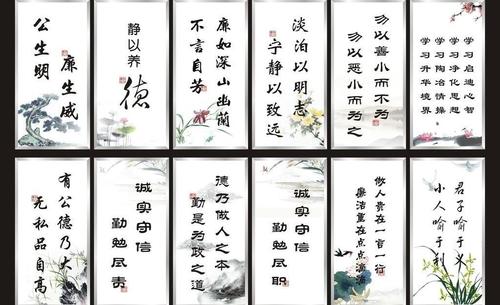 公生明
廉生威
静以养
德
廉如深山幽蘭
不言自芳
淡泊以明志
宁静以致远
勿以善小而不为
勿以恶小而为之
学习启迪心智
学习净化思想
学习陶冶情操
学习升华境界
有公德乃大
无私品自高
诚实守信
勤勉尽责
德乃做人之本
勤是为政之道
诚实守信
勤勉尽职
做人贵在一言一行
廉洁重在点点滴滴
君子喻于义
小人喻于利